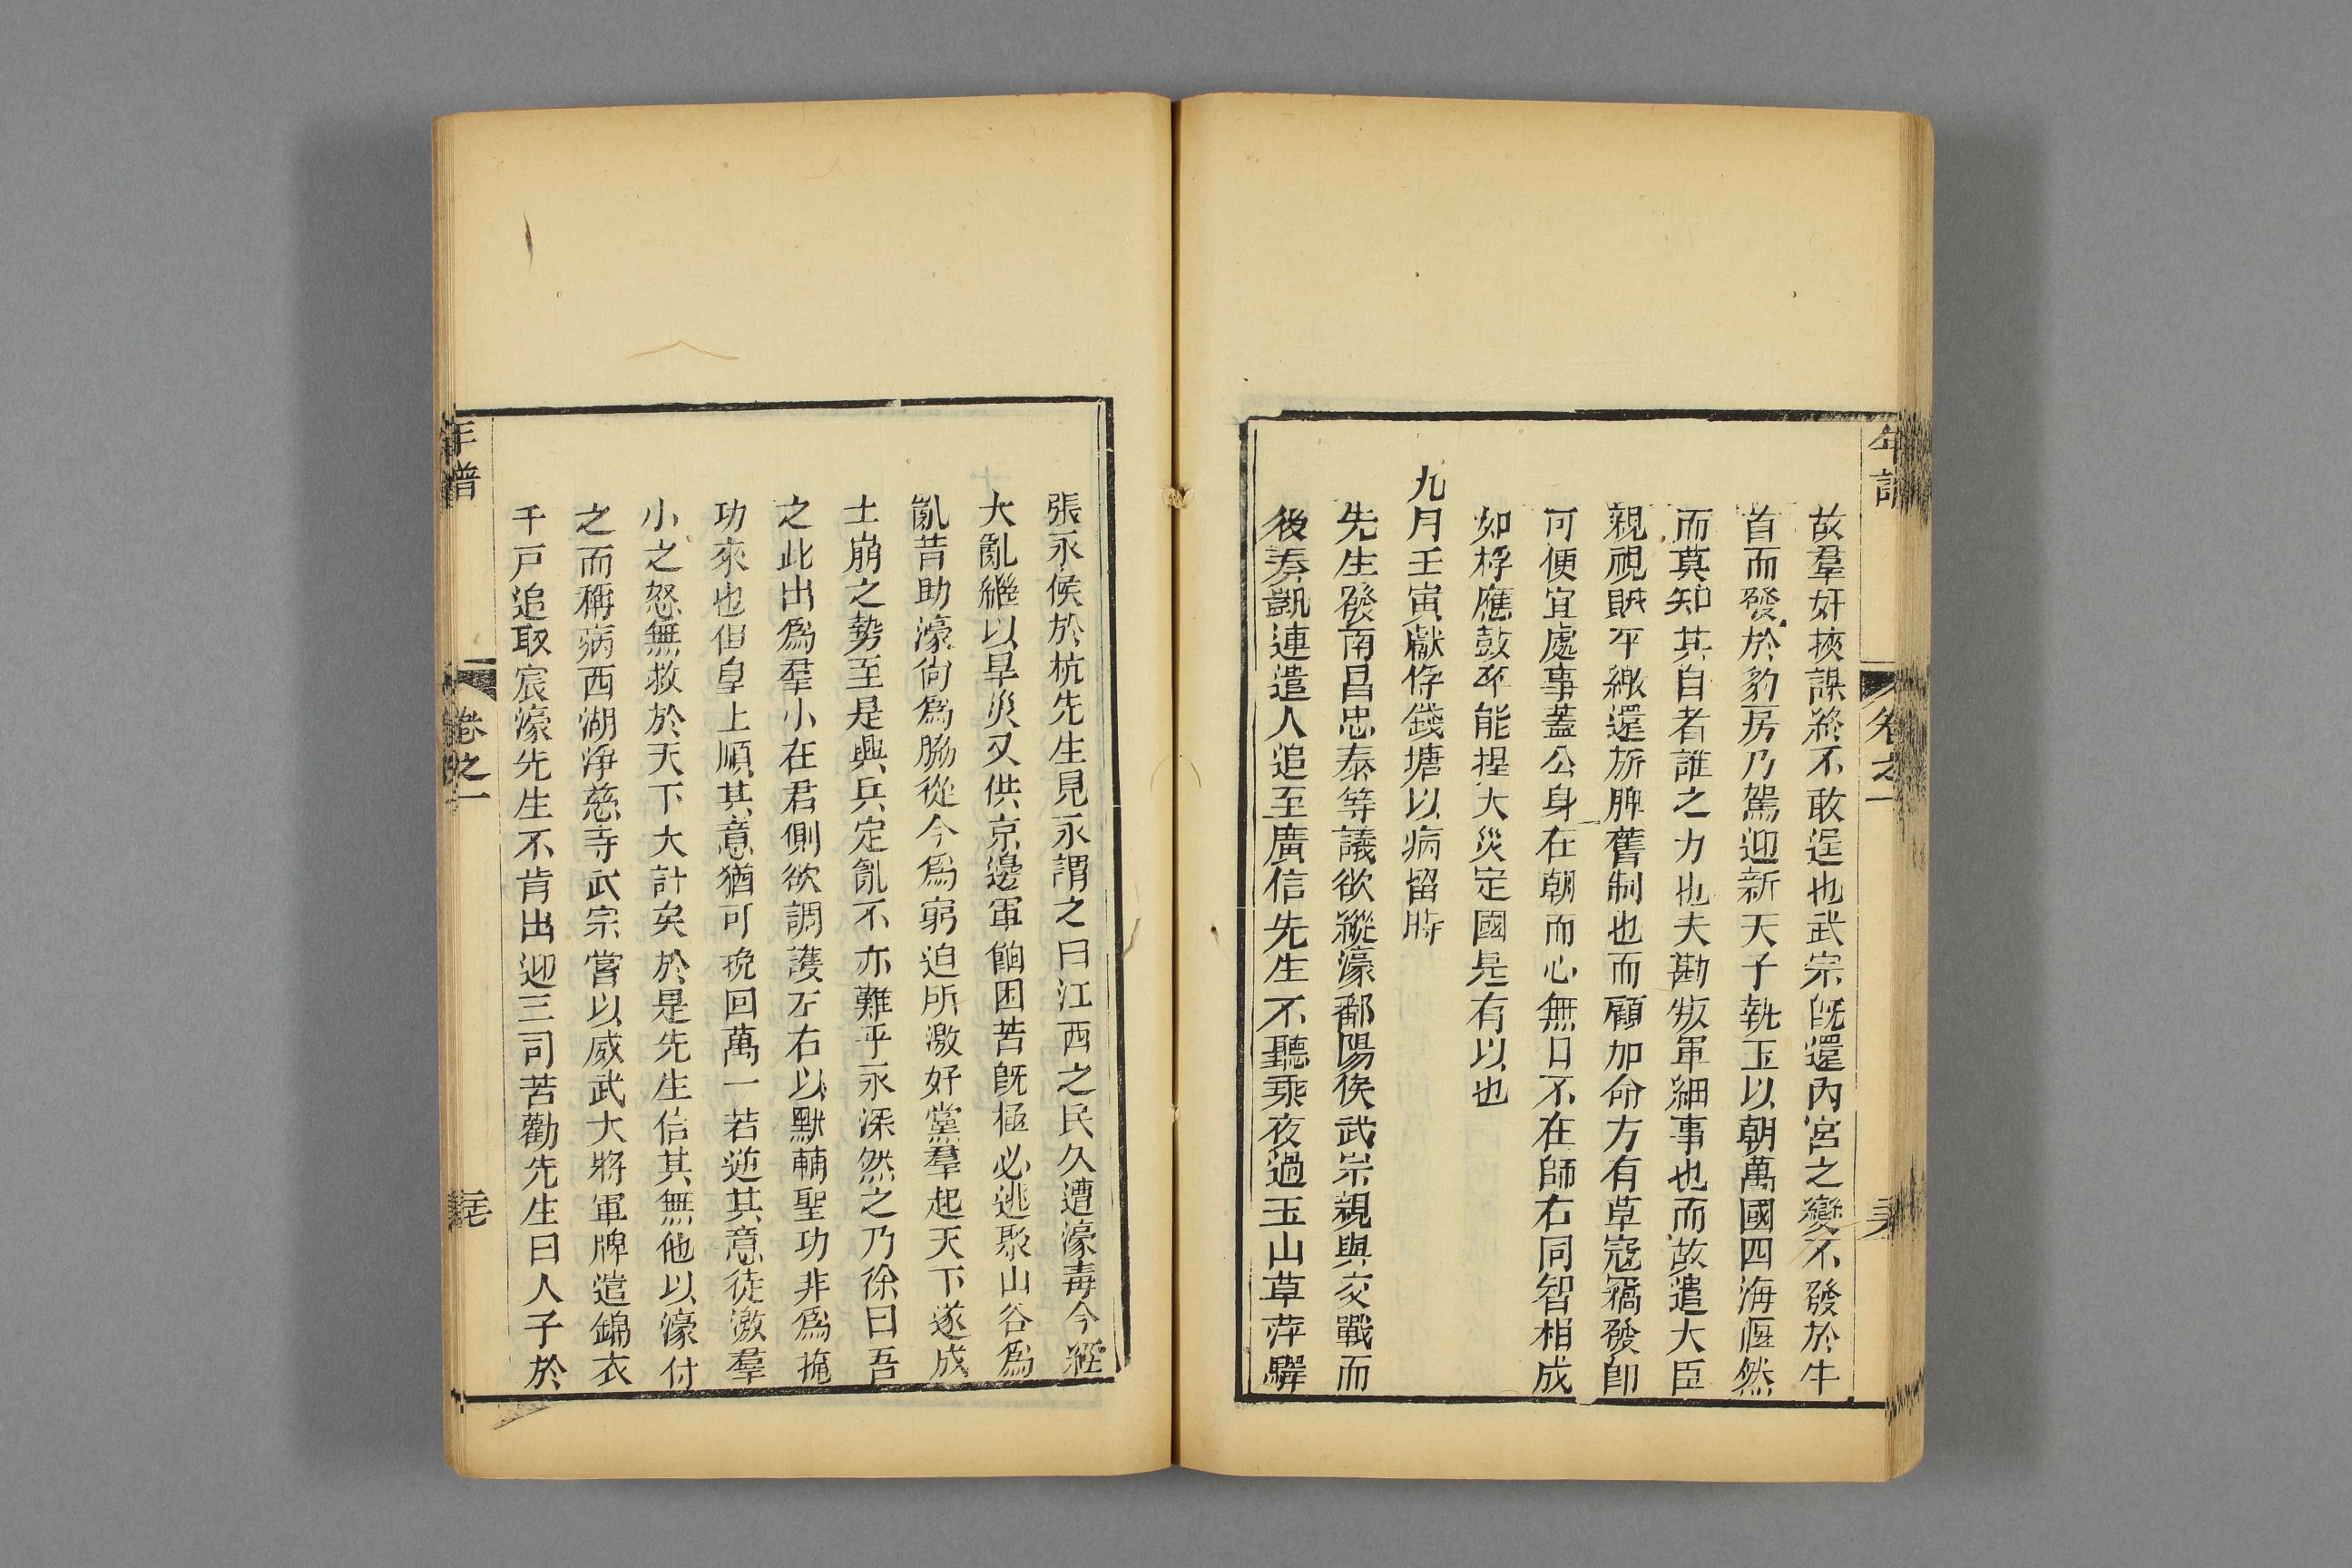 年譜
卷之一
故羣奸挾謀終不敢逞也武宗旣還內宮之變不發於牛
首而發於豹房乃駕迎新天子執玉以朝萬國四海晏然
而莫知其自者誰之力也夫勘叛軍細事也而故遣大臣
親視賊平繳還旂牌舊制也而顧加命方有草寇竊發卽
可便宜處事蓋公身在朝而心無日不在師右同智相成
如桴應鼓卒能捏大災定國是有以也
九月壬寅獻俘錢塘以病留時
先生發南昌忠泰等議欲縱濠鄱陽俟武宗親與交戰而
後奏凱連遣人追至廣信先生不聽乘夜過玉山草萍驛
張永候於杭先生見永謂之曰江西之民久遭濠毒今經
大亂繼以旱災又供京邊軍餉困苦旣極必逃聚山谷爲
亂昔助濠尙爲脇從今爲窮迫所激奸黨羣起天下遂成
土崩之勢至是興兵定亂不亦難乎永深然之乃徐曰吾
之此出爲羣小在君側欲調護左右以默輔聖功非爲掩
功來也但皇上順其意猶可挽回萬一若逆其意徒激羣
小之怒無救於天下大計矣於是先生信其無他以濠付
之而稱病西湖淨慈寺武宗嘗以威武大將軍牌遣錦衣
千戶追取宸濠先生不肯出迎三司苦勸先生曰人子於
年譜
卷之一